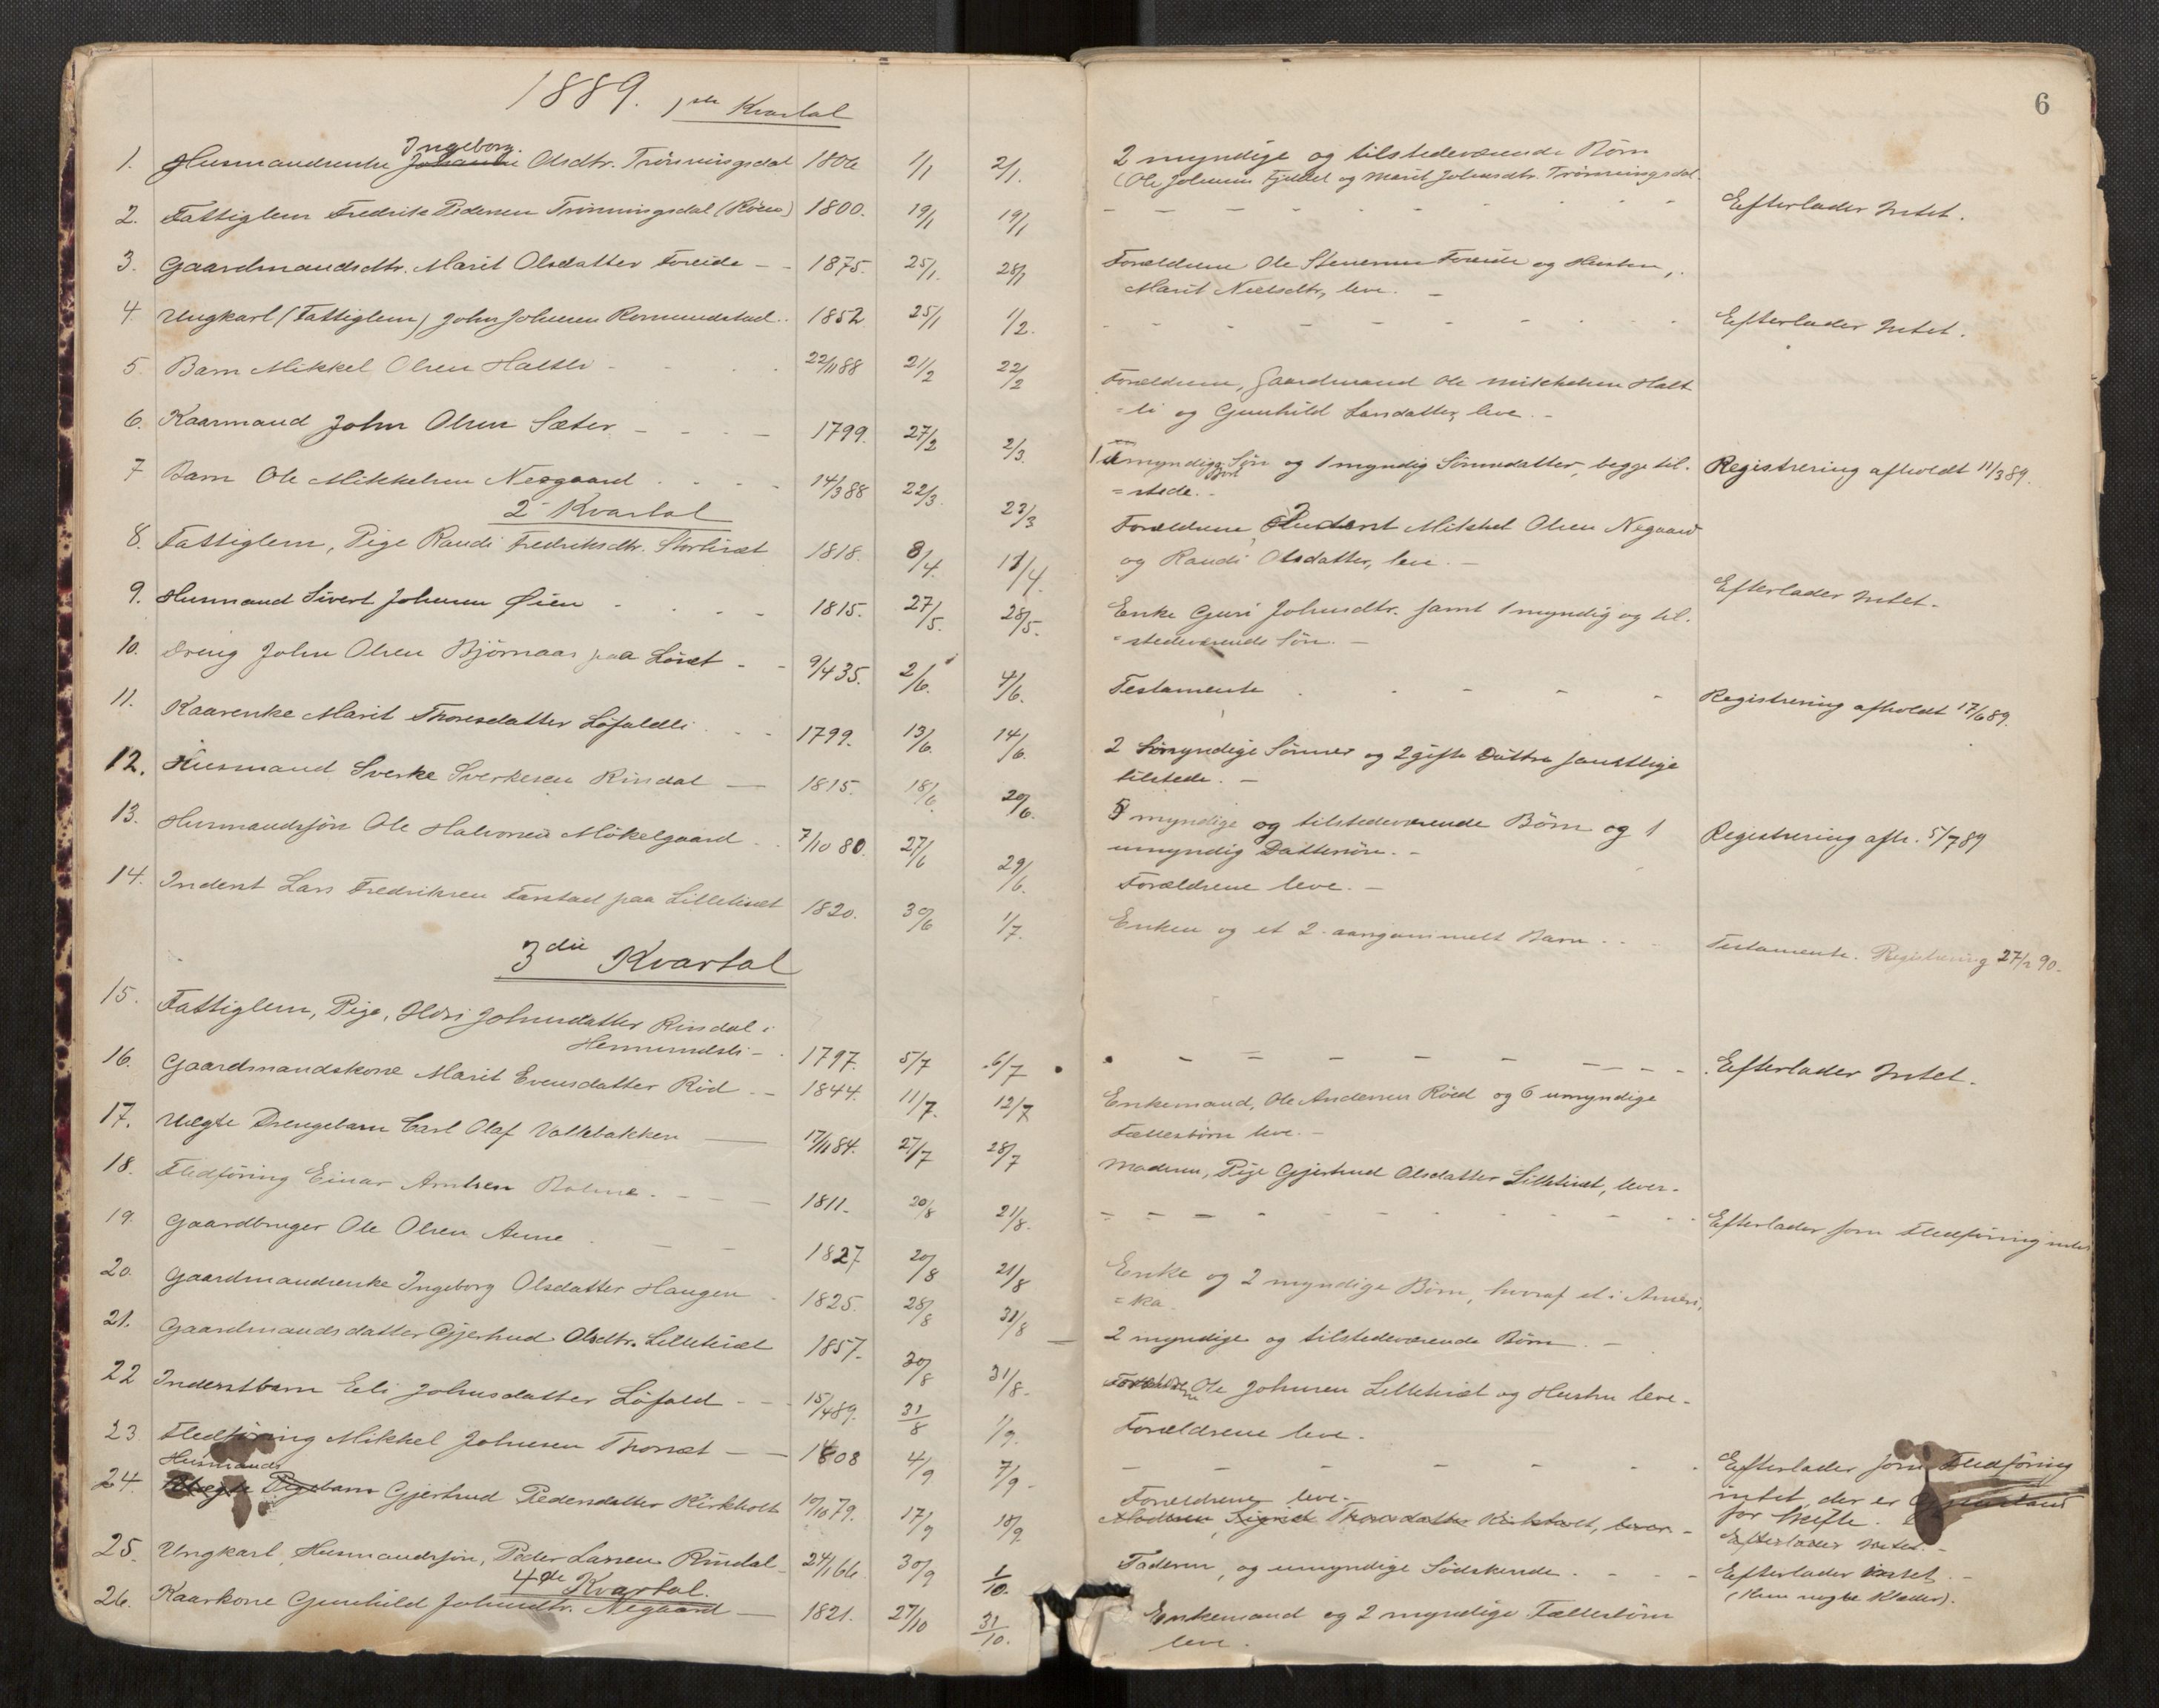 6
1889. 1ste Kvartal
1. Husmandsenke Johanne Ingeborg Olsdtr. Trönningsdal 1806 1/1 2/1. 2 myndige og tilstedeværende Börn
(Ole Johnsen Fjeldet og Marit Johnsdtr. Trönningsdal.
2. Fattiglem Fredrik Pedersen Trönningsdal (Röen) 1800. 19/1 19/1 - - - Efterlader Intet.
3. Gaardmandsdtr. Marit Olsdatter Foreide - - 1875. 25/1. 28/1 Forældrene Ole Stenersen Foreide og Hustru,
Marit Neelsdtr, leve. -
4. Ungkarl (Fattiglem) John Johnsen Romundstad.. 1852 25/1 1/2. - - - Efterlader Intet.
5. Barn Mikkel Olsen Haltli - 22/11 88 21/2 22/2 Forældrene, Gaardmand Ole Mikkelsen Halt
=li og Gunhild Larsdatter, leve. -
6. Kaarmand John Olsen Sæter - - - 1799. 27/2 2/3. 1 myndig Sön og 1 myndig Sönnedatter, begge til.
=stede. - Registrering afholdt 11/3 89.
7 Barn Ole Mikkelsen Negaard 14/3 88 22/3. 23/3 Forældrene, Inderst Mikkel Olsen Negaard
og Randi Olsdatter, leve. -
2 Kvartal
8. Fattiglem, Pige Randi Fredriksdtr. Stortiset 1818. 8/4. 11/4. Efterlader Intet.
9. Husmand Sivert Johnsen Øien 1815. 27/5. 28/5. Enke Guri Johnsdtr. samt 1 myndig og til.
=stedeværende Sön. -
10. Dreng John Olsen Bjørnaas paa Löset - - 9/4 35. 2/6. 4/6. Testamente Registrering afholdt 17/6 89.
11. Kaarenke Marit Thoresdatter Löfaldli 1799. 13/6. 14/6. 2 myndige Sönner og 2 gifte Döttre samtlige
tilstede. -
12. Husmand Sverke Sverkesen Rindal - 1815. 18/6. 20/6. 5 myndige og tilstedeværende Börn og 1
umyndig Dattersön. - Registrering afh. 5/7 89
13. Husmandssön Ole Halvorsen Mökelgaard 7/10 80. 27/6 29/6. Forældrene leve. -
14. Inderst Lars Fredriksen Farstad paa Lilletiset 1820. 30/6 1/7. Enken og et 2-aargammelt Barn. Testamente. Registrering 27/2 90.
3die Kvartal
15. Fattiglem, Pige, Ildri Johnsdatter Rindal i
Hermundsli - 1797. 5/7 6/7 - - - Efterlader Intet.
16. Gaardmandskone Marit Evensdatter Röd 1844. 11/7. 12/7 Enkemand, Ole Andersen Röed og 6 umyndige
Fællesbörn leve. -
17. Uægte Drengebarn Carl Olaf Vollebakken 17/11 84. 27/7 28/7 Moderen, Pige Gjertrud Olsdatter Lilletiset, lever.
18. Fledføring Einar Arntsen Bolme 1811. 20/8 21/8. - - - Efterlader som Fledføring intet
19. Gaardbruger Ole Olsen Aune 1827 20/8 21/8 Enke og 2 myndige Börn, hvoraf et i Ameri,
=ka.
20. Gaardmandsenke Ingeborg Olsdatter Haugen 1825. 28/8 31/8 2 myndige og tilstedeværende Börn. -
21. Gaardmandsdatter Gjertrud Olsdtr. Lilletiset 1857. 30/8 31/8. Forældrene Ole Johnsen Lilletiset og Hustru leve.
22 Inderstbarn Eli Johnsdatter Löfald 15/4 89. 31/8 1/9. Forældrene leve.
23 Fledføring Mikkel Johnsen Thoresæt 1808 4/9 7/9. - - - Efterlader som Fledføring
intet, der er
for Skifte.
24. Uægte Pigebarn Husmands Gjertrud Pedersdatter Kirkholt 10/10 79. 17/9 18/9. Forældrene leve.
Moderen, Sigrid Thoresdatter Kirkholt, lever. Efterlader Intet. -
25. Ungkarl, Husmandssön, Peder Larsen Rindal 24/1 66. 30/9 1/10. Faderen, og umyndige Södskende. Efterlader intet. -
(Kun nogle Klæder).
4de Kvartal.
26. Kaarkone Gunhild Johnsdtr. Negaard - 1821. 27/10 31/10. Enkemand og 2 myndige Fællesbörn
leve.